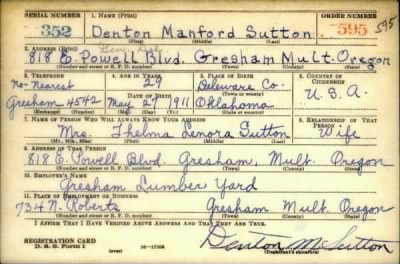 SERIAL NUMBER 1. NAME (Print) ORDER NUMBER
352 Denton Manford Sutton 595 595
(First) (Middle) (Last)
2. ADDRESS (Print)
818 E. Powell Blvd. Gresham Mult. Oregon
(Number and street or R. F. D. number) (Town) (County) (State)
3. TELEPHONE 4. AGE IN YEARS 5. PLACE OF BIRTH 6. COUNTRY OF CITIZENSHIP
no-nearest 29 Deleware Co.
Gresham 4542 May 27 1911 Oklahoma U.S.A.
(Exchange) (Number) (Mo.) (Day) (Yr.) (State or country)
7. NAME OF PERSON WHO WILL ALWAYS KNOW YOUR ADDRESS 8. RELATIONSHIP OF THAT PERSON
Mrs. Thelma Lenora Sutton Wife
(Mr., Mrs., Miss) (First) (Middle) (Last)
9. ADDRESS OF THAT PERSON
818 E. Powell Blvd. Gresham, Mult. Oregon
(Number and street or R. F. D. number) (Town) (County) (State)
10. EMPLOYER'S NAME
Gresham Lumber Yard
11. PLACE OF EMPLOYMENT OR BUSINESS
734 N. Roberts Gresham Mult. Oregon
(Number and street or R. F. D. number) (Town) (County) (State)
I AFFIRM THAT I HAVE VERIFIED ABOVE ANSWERS AND THAT THEY ARE TRUE.
REGISTRATION CARD
D. S. S. Form 1 16-17105 Denton M Sutton